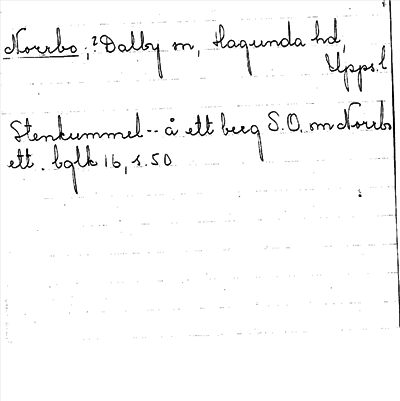 Norrbo ; Dalby sn, Hagunda hd,
Upps.l
Stenkummel -- å ett berg S.O. om Norrbo
ett. bglk 16, s. 50